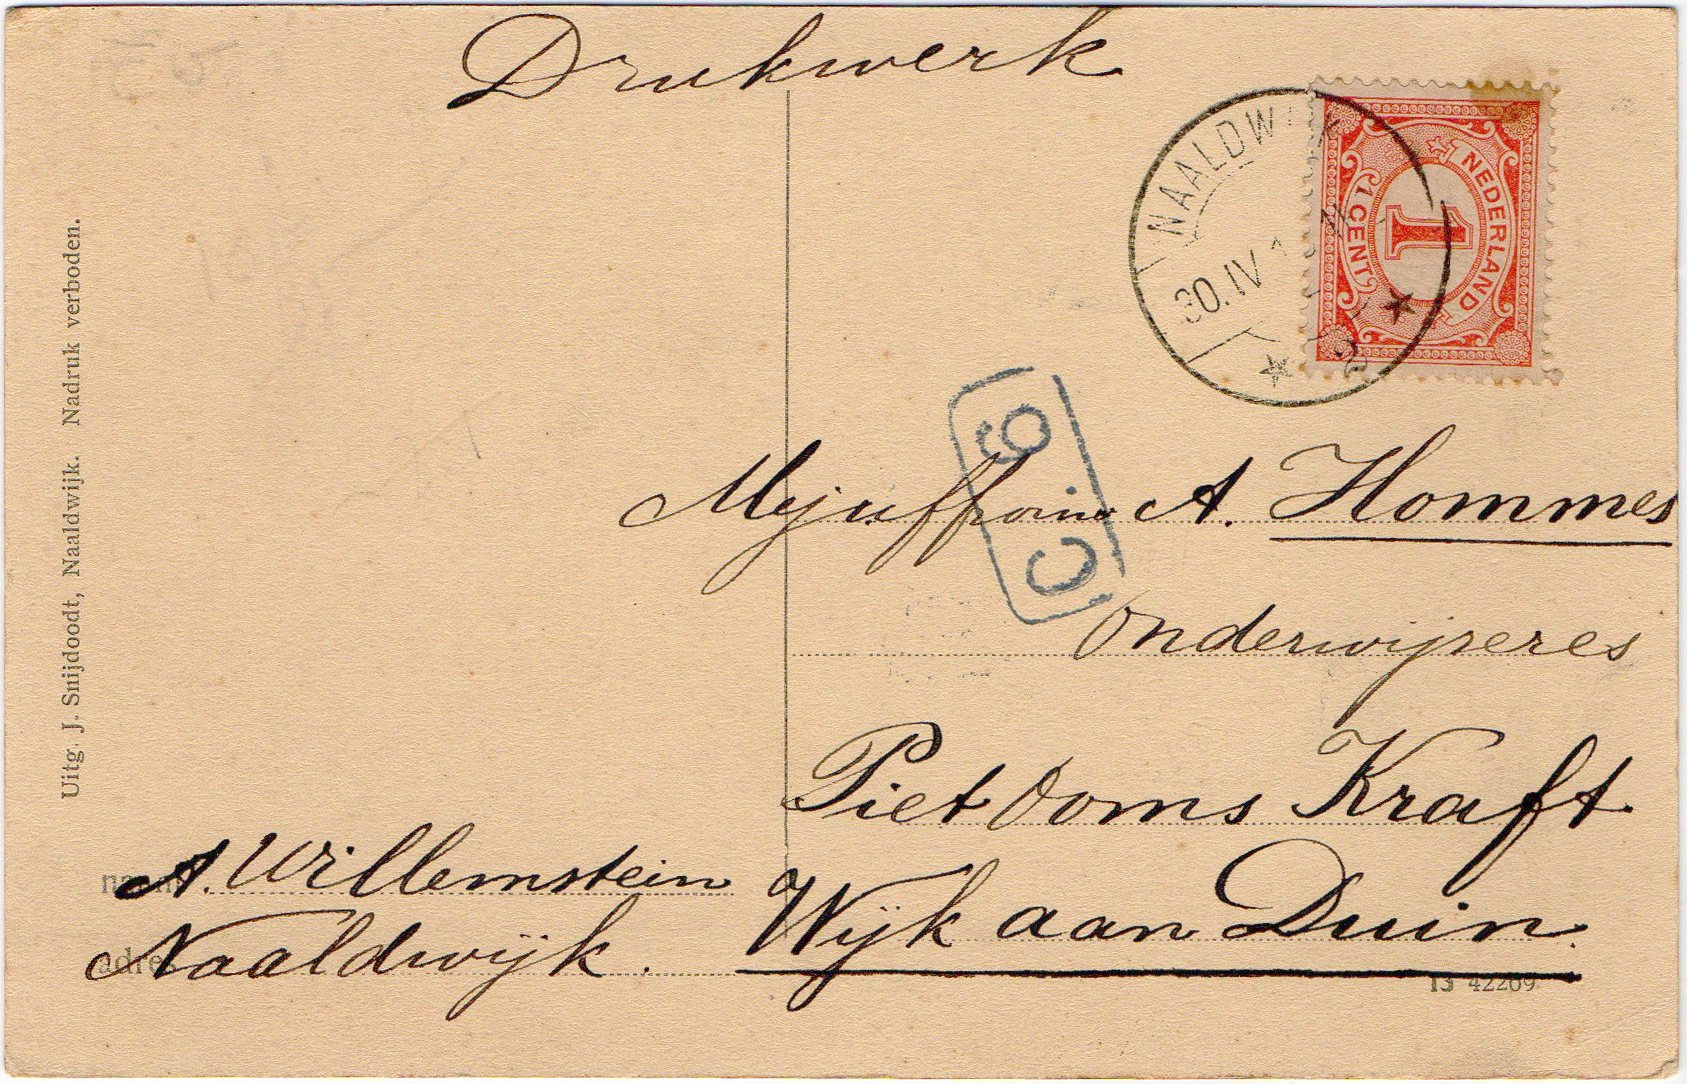 Drukwerk
NAALDWIJK
30.IV.1
2
NEDERLAND
1
1 CENT
6
C
Mejuffrouw A. Hommes
Onderwijzeres
Piet Ooms Kraft
Wijk aan Duin
A. Willemstein
Naaldwijk.
naam
adres
Uitg. J. Snijdoodt, Naaldwijk. Nadruk verboden.
13 42209